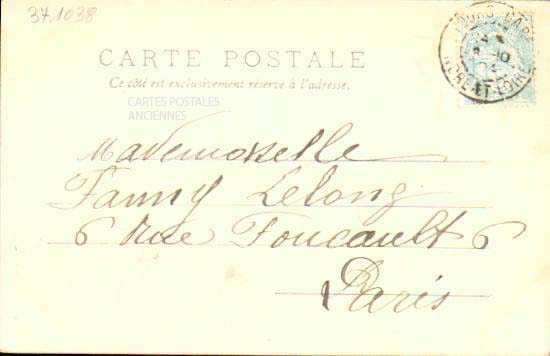 371038
TOURS GARE
INDRE-ET-LOIRE
CARTE POSTALE
Ce côté est exclusivement réservé à l'adresse.
CARTES POSTALES
ANCIENNES
Mademoiselle
Fanny Lelong
6 Rue Foucault 6
Paris